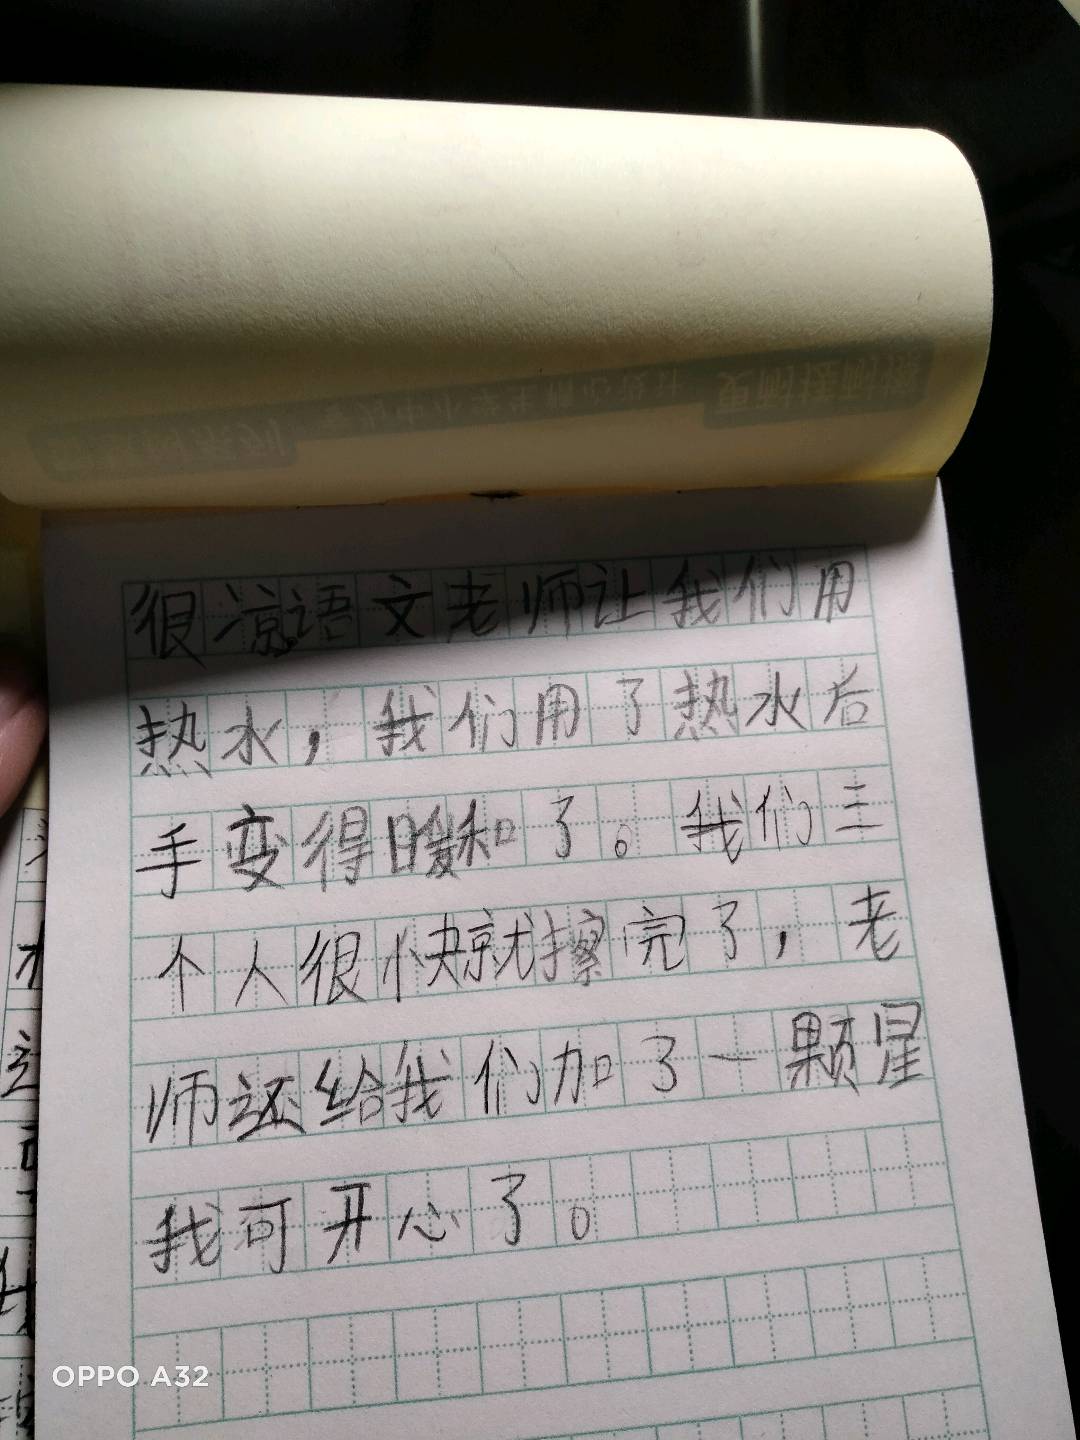 很凉语文老师让我们用
热水，我们用了热水后
手变得暖和了。我们三
个人很快就擦完了，老
师还给我们加了一颗星
我可开心了。
OPPO A32